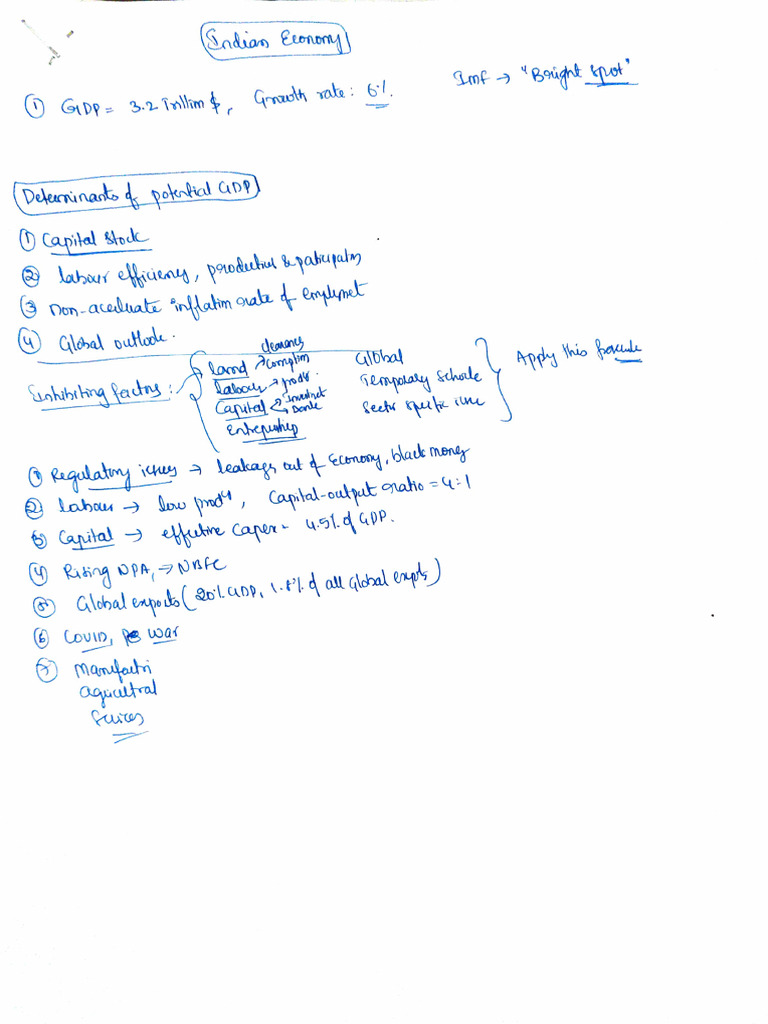 Indian Economy
① GDP = 3.2 Trillion $, Growth rate: 6%. IMF → "Bright spot"
Determinants of potential GDP
① Capital stock
② labour efficiency, productive & participation
③ non-accelerate inflation rate of employment
④ Global outlook.
Inhibiting factors:
land → clearances → Corruption Global
labour → prody. Temporary Schocke
Capital → Investment → Domestic Sector specific issue
Entrepreship
Apply this formula
① Regulatory issues → leakages out of Economy, black money
② labour → low prody, Capital-output ratio = 4:1
③ Capital → effective Capex - 4.5% of GDP.
④ Rising NPA, → NBFC
⑤ Global exports (20% GDP, 1.8% of all Global expts)
⑥ COVID, war
⑦ Manufactri
agricultral
Services